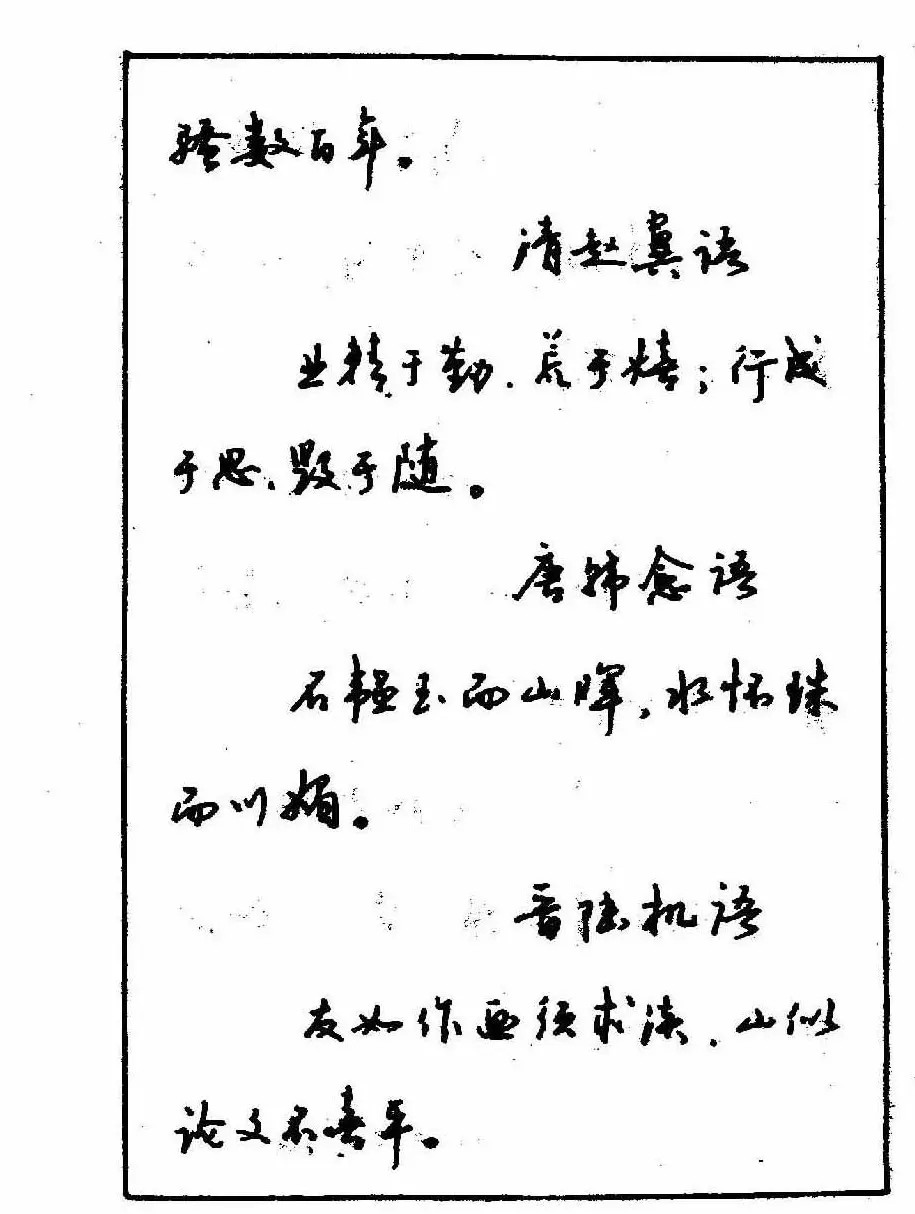 骚数百年。
清赵翼语
业精于勤、荒于嬉；行成
于思、毁于随。
唐韩愈语
石韫玉而山晖，水怀珠
而川媚。
晋陆机语
友如作画须求淡，山似
论文不喜平。